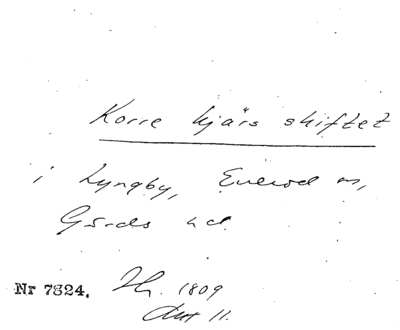 Korre kjärs skiftet
i Lyngby, Everöd sn,
Gärds hd
Nr 7324. 1809
Akt 11.